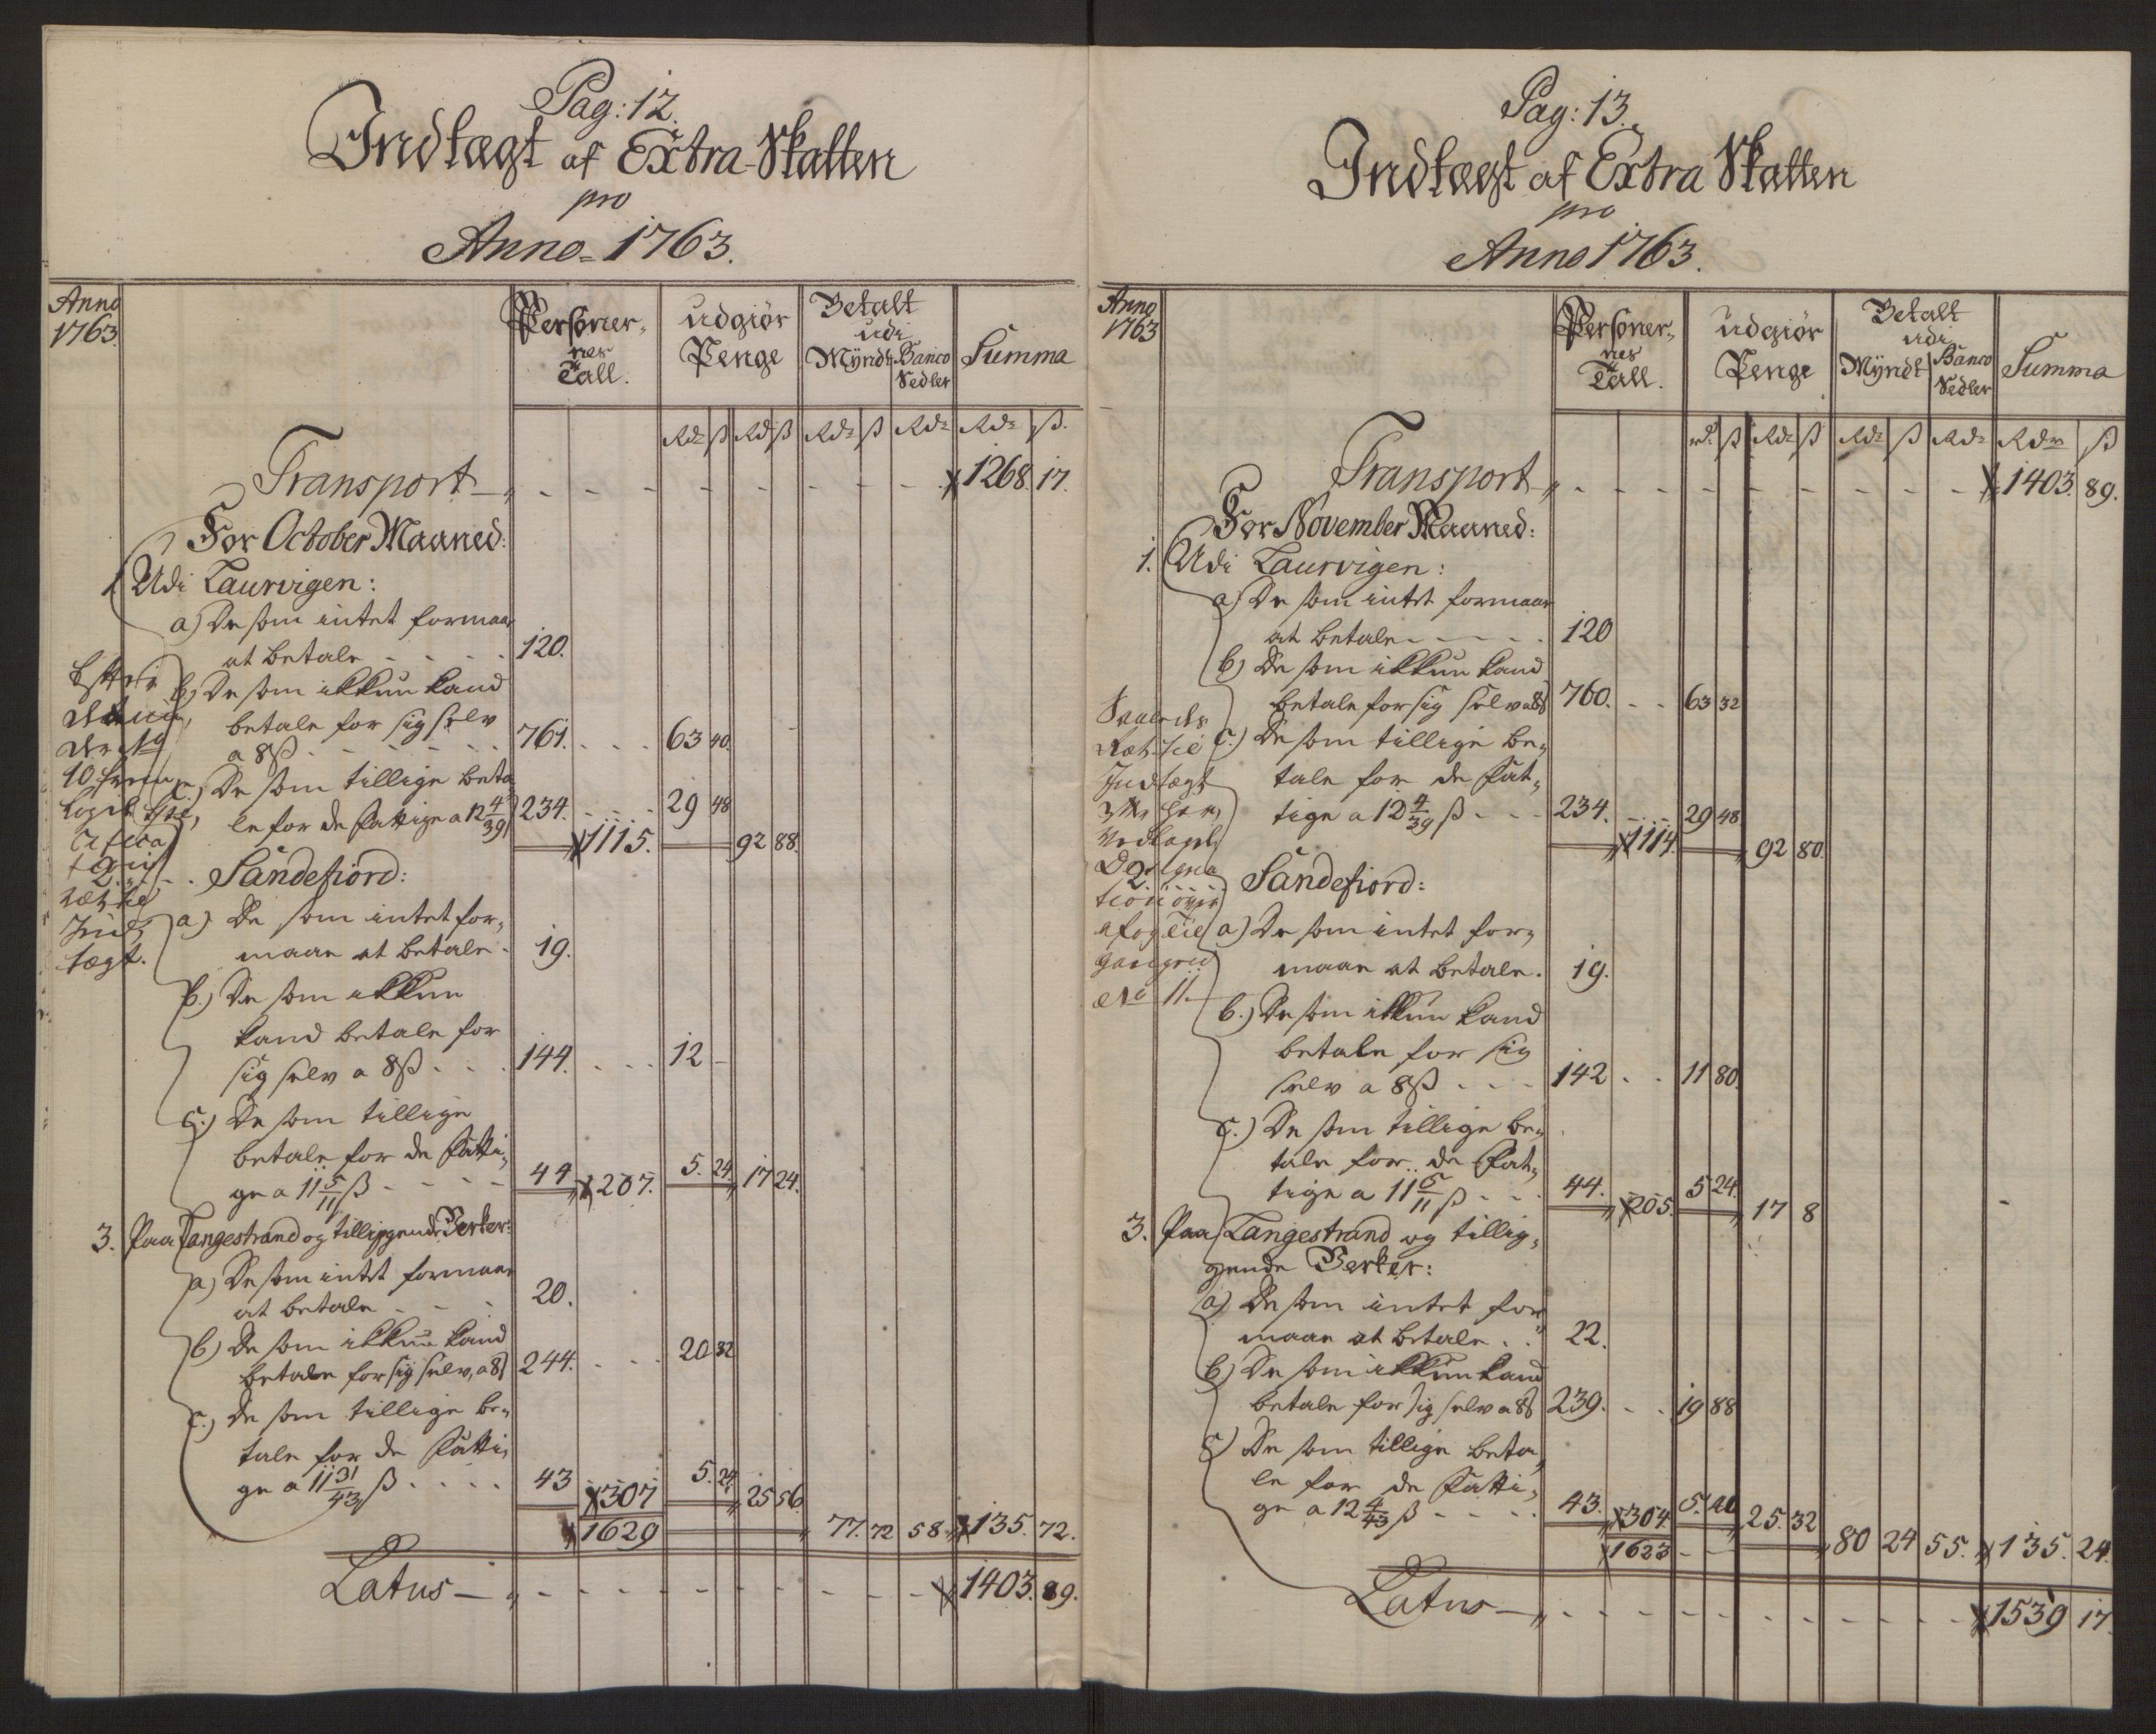 Pag: 12.
Indtægt af Extra-Skatten
pro
Anno=1763.
Anno 1763.
Personer,, nes Tall.
udgiør Penge
Betalt udi
Myndt
Banco Sedler
Summa
Rdr ß Rd ß Rdr ß Rdr Rdr ß.
Transport - - - - - - - - - 1268. 17.
For October Maaned:
1. Udi Laurvigen:
a) De som intet formaar
at betale - - - - 120.
b) De som ikkun kand
betale for sig selv
a 8ß - - - - - 761. - - - 63 40.
c.) De som tillige beta
le for de Fattige a 12 4/39 234. - - - 29 48
1115. 92 88.
2. - - Sandefiord:
a) De som intet for,,
maar at betale - 19.
b.) De som ikkun
kand betale for
sig selv a 8ß - - - 144. - - - 12 -
c.) De som tillige
betale for de Fatti,,
ge a 11 5/11 ß - - - - 44 207. 5. 24 17 24.
3. Paa Langestrand og tilliggende Verker:
a) De som intet formaar
at betale - - - 20.
b) De som ikkun kand
betale for sig selv, a 8ß 244. - - - 20 32
c.) De som tillige be,,
tale for de Fatti,,
ge a 11 31/43 ß - - - - 43 307 5. 24 25 56.
1629 77. 72 58. 135. 72.
Latus - - - - - - - - - 1403. 89.
rætte
Ind,,
tægt.
Pag: 13.
Indtægt af Extra Skatten
pro
Anno 1763.
Anno 1763
Personer,, nes Tall.
udgiør Penge
Betalt udi
Myndt
Banco Sedler
Summa
rd. ß Rdr ß Rdr ß Rdr Rdr ß
Transport - - - - - - - - - 1403. 89.
For November Maaned:
1. Udi Laurvigen:
a) De som intet formaar
at betale - - - - 120
b) De som ikkun kand
betale for sig selv a 8ß 760. - - 63 32
c.) De som tillige be,,
tale for de Fat,,
tige a 12 4/39 ß - - - 234. - - - 29 48
1114. 92 80.
2. Sandefiord:
a) De som intet for,,
maar at betale. 19.
b.) De som ikkun kand
betale for sig
selv a 8ß - - - 142 - - 11 80.
c.) De som tillige be,,
tale for de Fat,,
tige a 11 5/11 ß - - - 44. 205. 5 24. 17 8
3. Paa Langestrand og tillig,,
gende Verker:
a) De som intet for,,
maar at betale. . 22.
b) De som ikkun kand
betale for sig selv a 8ß 239. - - 19 88
c) De som tillige beta,,
le for de Fatti,,
ge a 12 4/43 ß - - - - 43. 304. 5. 40 25. 32
1623 - - 80 24 55. 135. 24.
Latus - - - - - - - - - 1539 17.
Indtægt
No 11.